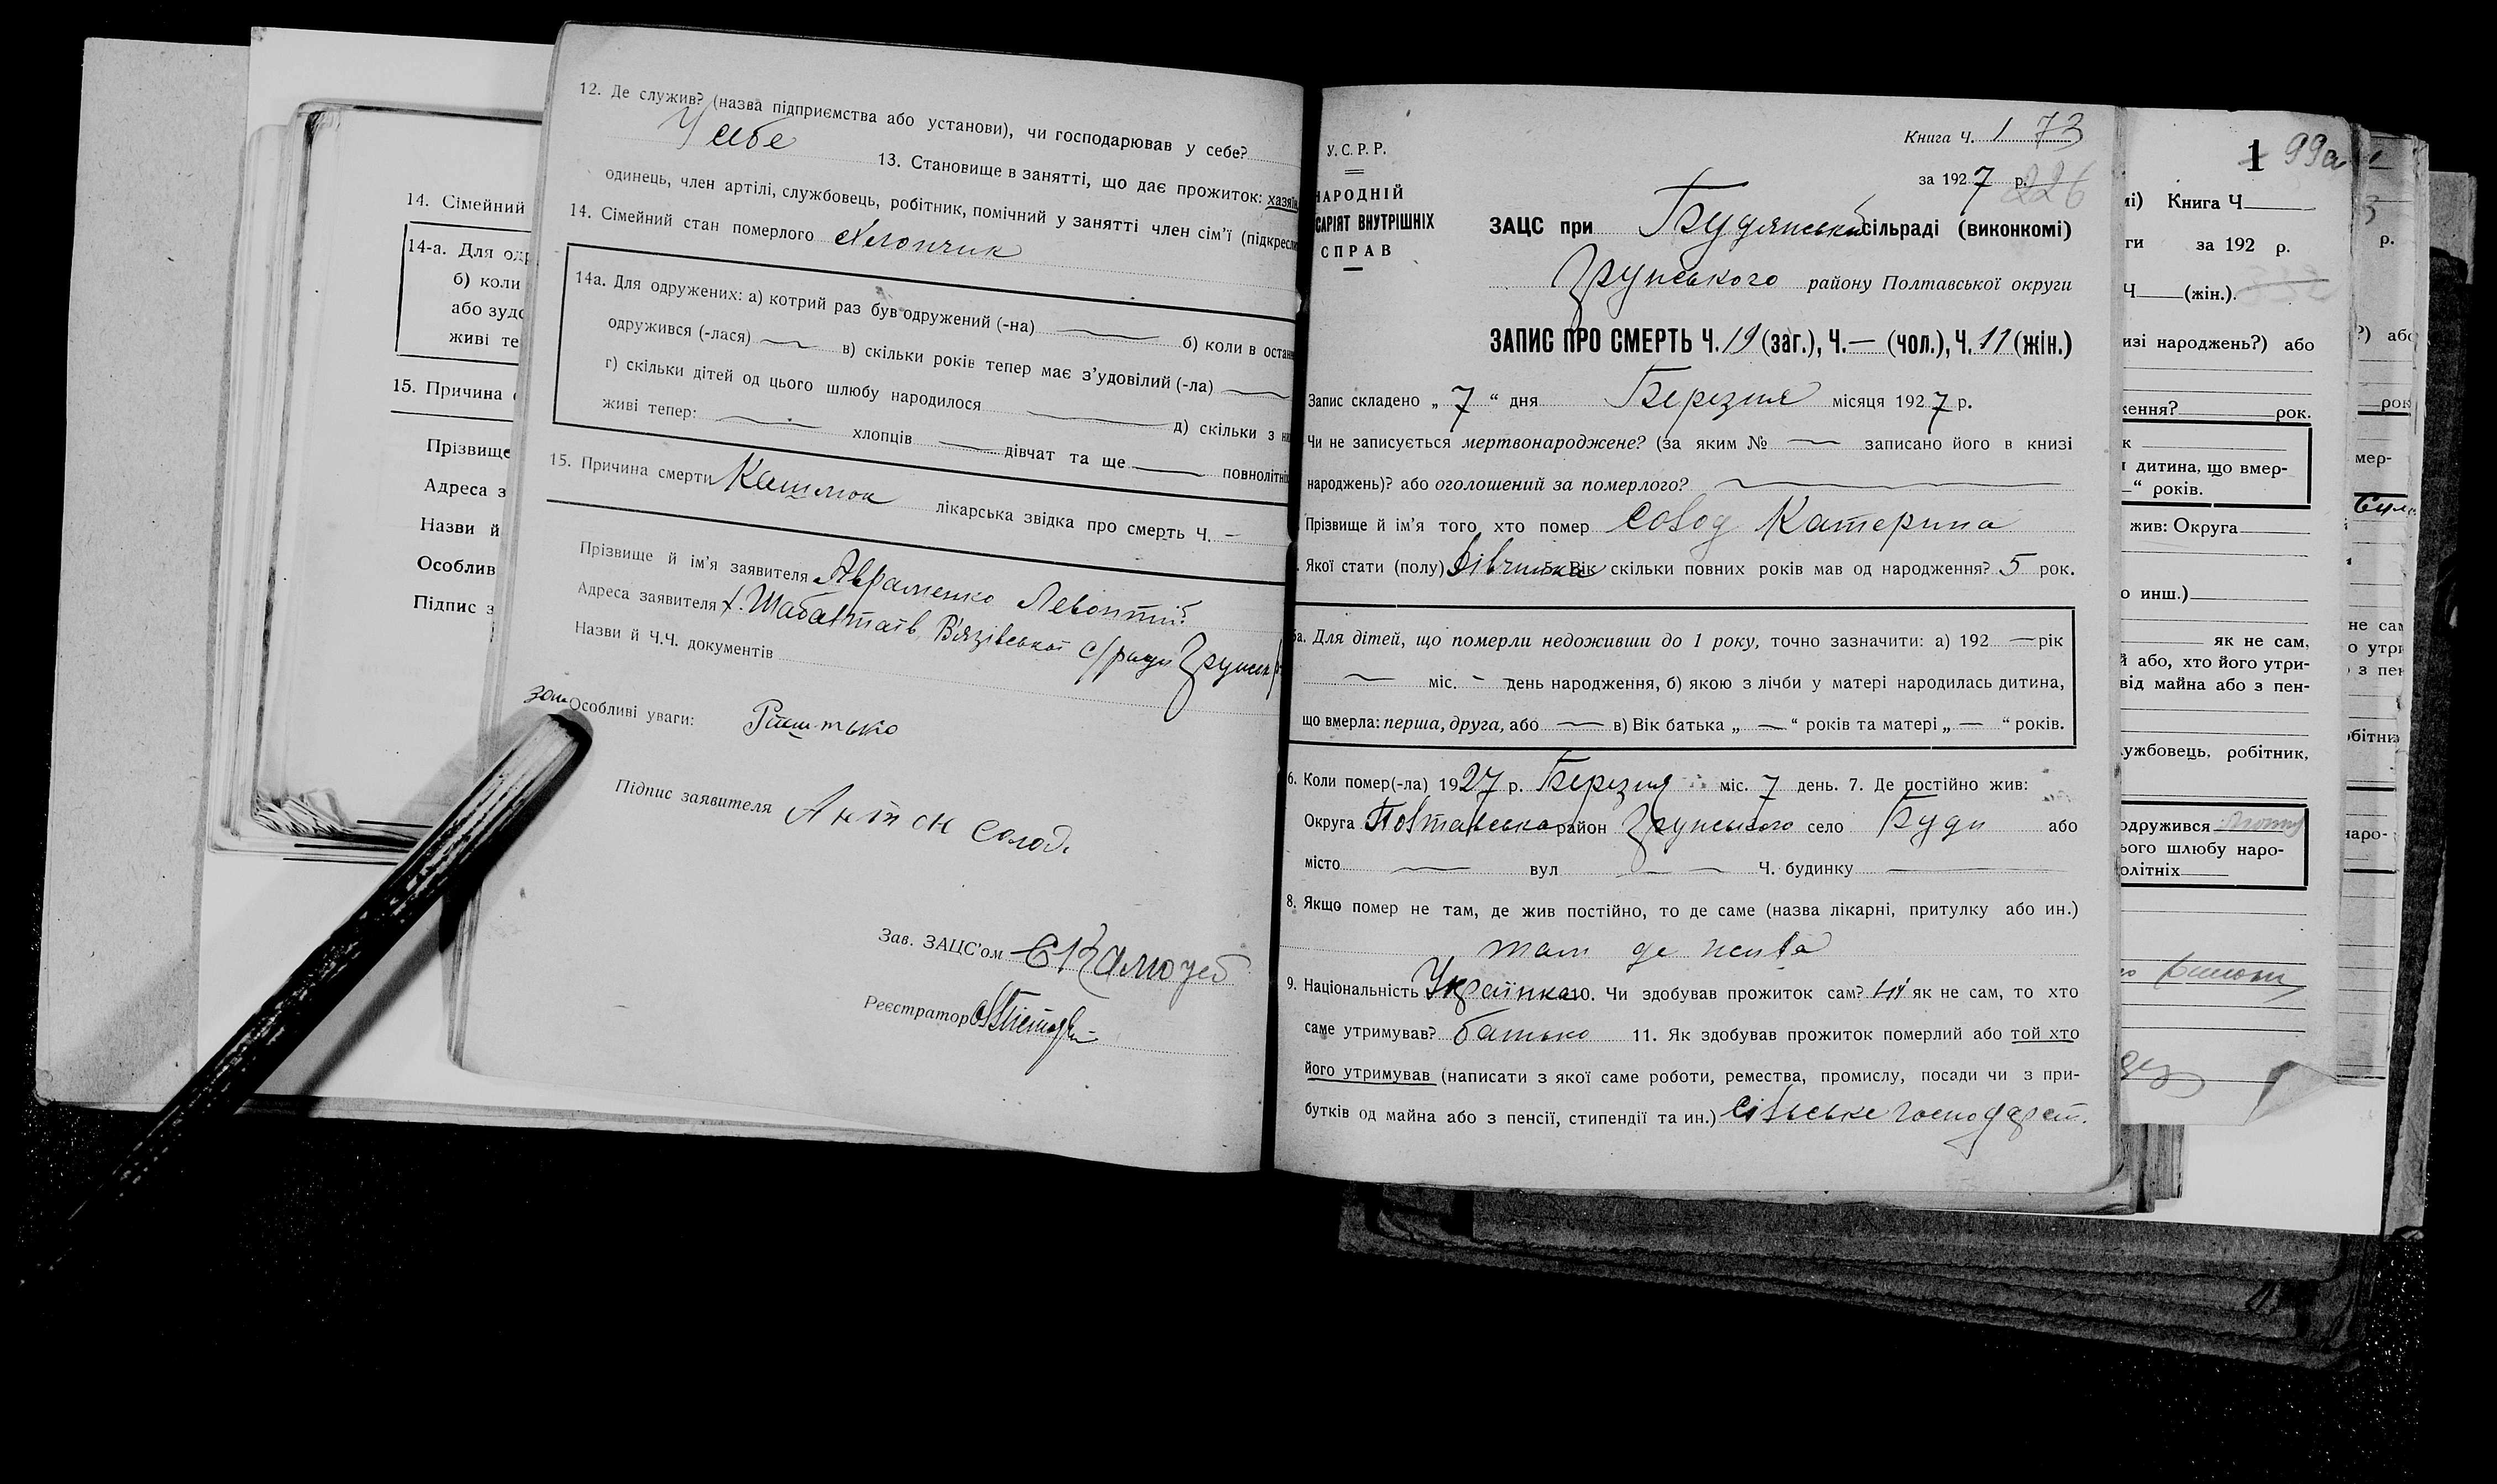 14. Сімейний
14-а. Для
б) коли
або зудо
живі те
15. Причина
Прізвище
Адреса з
Назви й
Особлив
Підпис з
12. Де служив? (назва підприємства або установи), чи господарював у себе?
У себе 13. Становище в занятті, що дає прожиток: хазяїн
одинець, член артілі, службовець, робітник, помічний у занятті член сім'ї (підкресли
14. Сімейний стан померлого Хлопчик
14а. Для одружених: а) котрий раз був одружений (-на) — б) коли в остан
одружився (-лася) — в) скільки років тепер має з'удовілий (-ла) —
г) скільки дітей од цього шлюбу народилося — д) скільки з ни
живі тепер: — хлопців — дівчат та ще — повнолітні
15. Причина смерти Кашлюк лікарська звідка про смерть Ч. -
Прізвище й ім'я заявителя Авраменко Левонтій
Адреса заявителя х. Шабалтаїв В'язівської с/ради
Назви й Ч.Ч. документів
Особливі уваги:
Підпис заявителя Солод
Зав. ЗАЦС'ом
Реєстратор
Книга Ч. 1 73
У.С.Р.Р.
за 1927 р. 226
НАРОДНІЙ
САРІЯТ ВНУТРІШНІХ
СПРАВ
ЗАЦС при Будянській сільраді (виконкомі)
Грунського району Полтавської округи
ЗАПИС ПРО СМЕРТЬ Ч. 19 (заг.), Ч. — (чол.), Ч. 11 (жін.)
Запис складено „ 7 “ дня Березня місяця 1927 р.
Чи не записується мертвонароджене? (за яким № — записано його в книзі
народжень)? або оголошений за померлого? —
Прізвище й ім'я того, хто помер Солод Катерина
Якої стати (полу) Дівчинка 5. Вік скільки повних років мав од народження? 5 рок.
5а. Для дітей, що померли недоживши до 1 року, точно зазначити: а) 192 — рік
— міс. - день народження, б) якою з лічби у матері народилась дитина,
що вмерла: перша, друга, або — в) Вік батька „ — “ років та матері „ — “ років.
6. Коли помер(-ла) 1927 р. Березня міс. 7 день. 7. Де постійно жив:
Округа Полтавська район Грунського село Буди або
місто — вул — — Ч. будинку —
8. Якщо помер не там, де жив постійно, то де саме (назва лікарні, притулку або ин.)
там де жила
9. Національність Українка 10. Чи здобував прожиток сам? ні як не сам, то хто
саме утримував? батько 11. Як здобував прожиток померлий або той хто
його утримував (написати з якої саме роботи, ремества, промислу, посади чи з при-
бутків од майна або з пенсії, стипендії та ин.) Сільське господарст.
1 99а
мі) Книга Ч
ги за 192 р.
Ч (жін.).
изі народжень?) або
ження? рок.
к
дитина, що вмер-
“ років.
жив: Округа
о инш.)
як не сам,
й або, хто його утри-
від майна або з пен-
ужбовець, робітник,
одружився
ього шлюбу наро-
олітніх
р.
?) або
рок
мер-
не сам
о утри
з пен
обітни
наро-